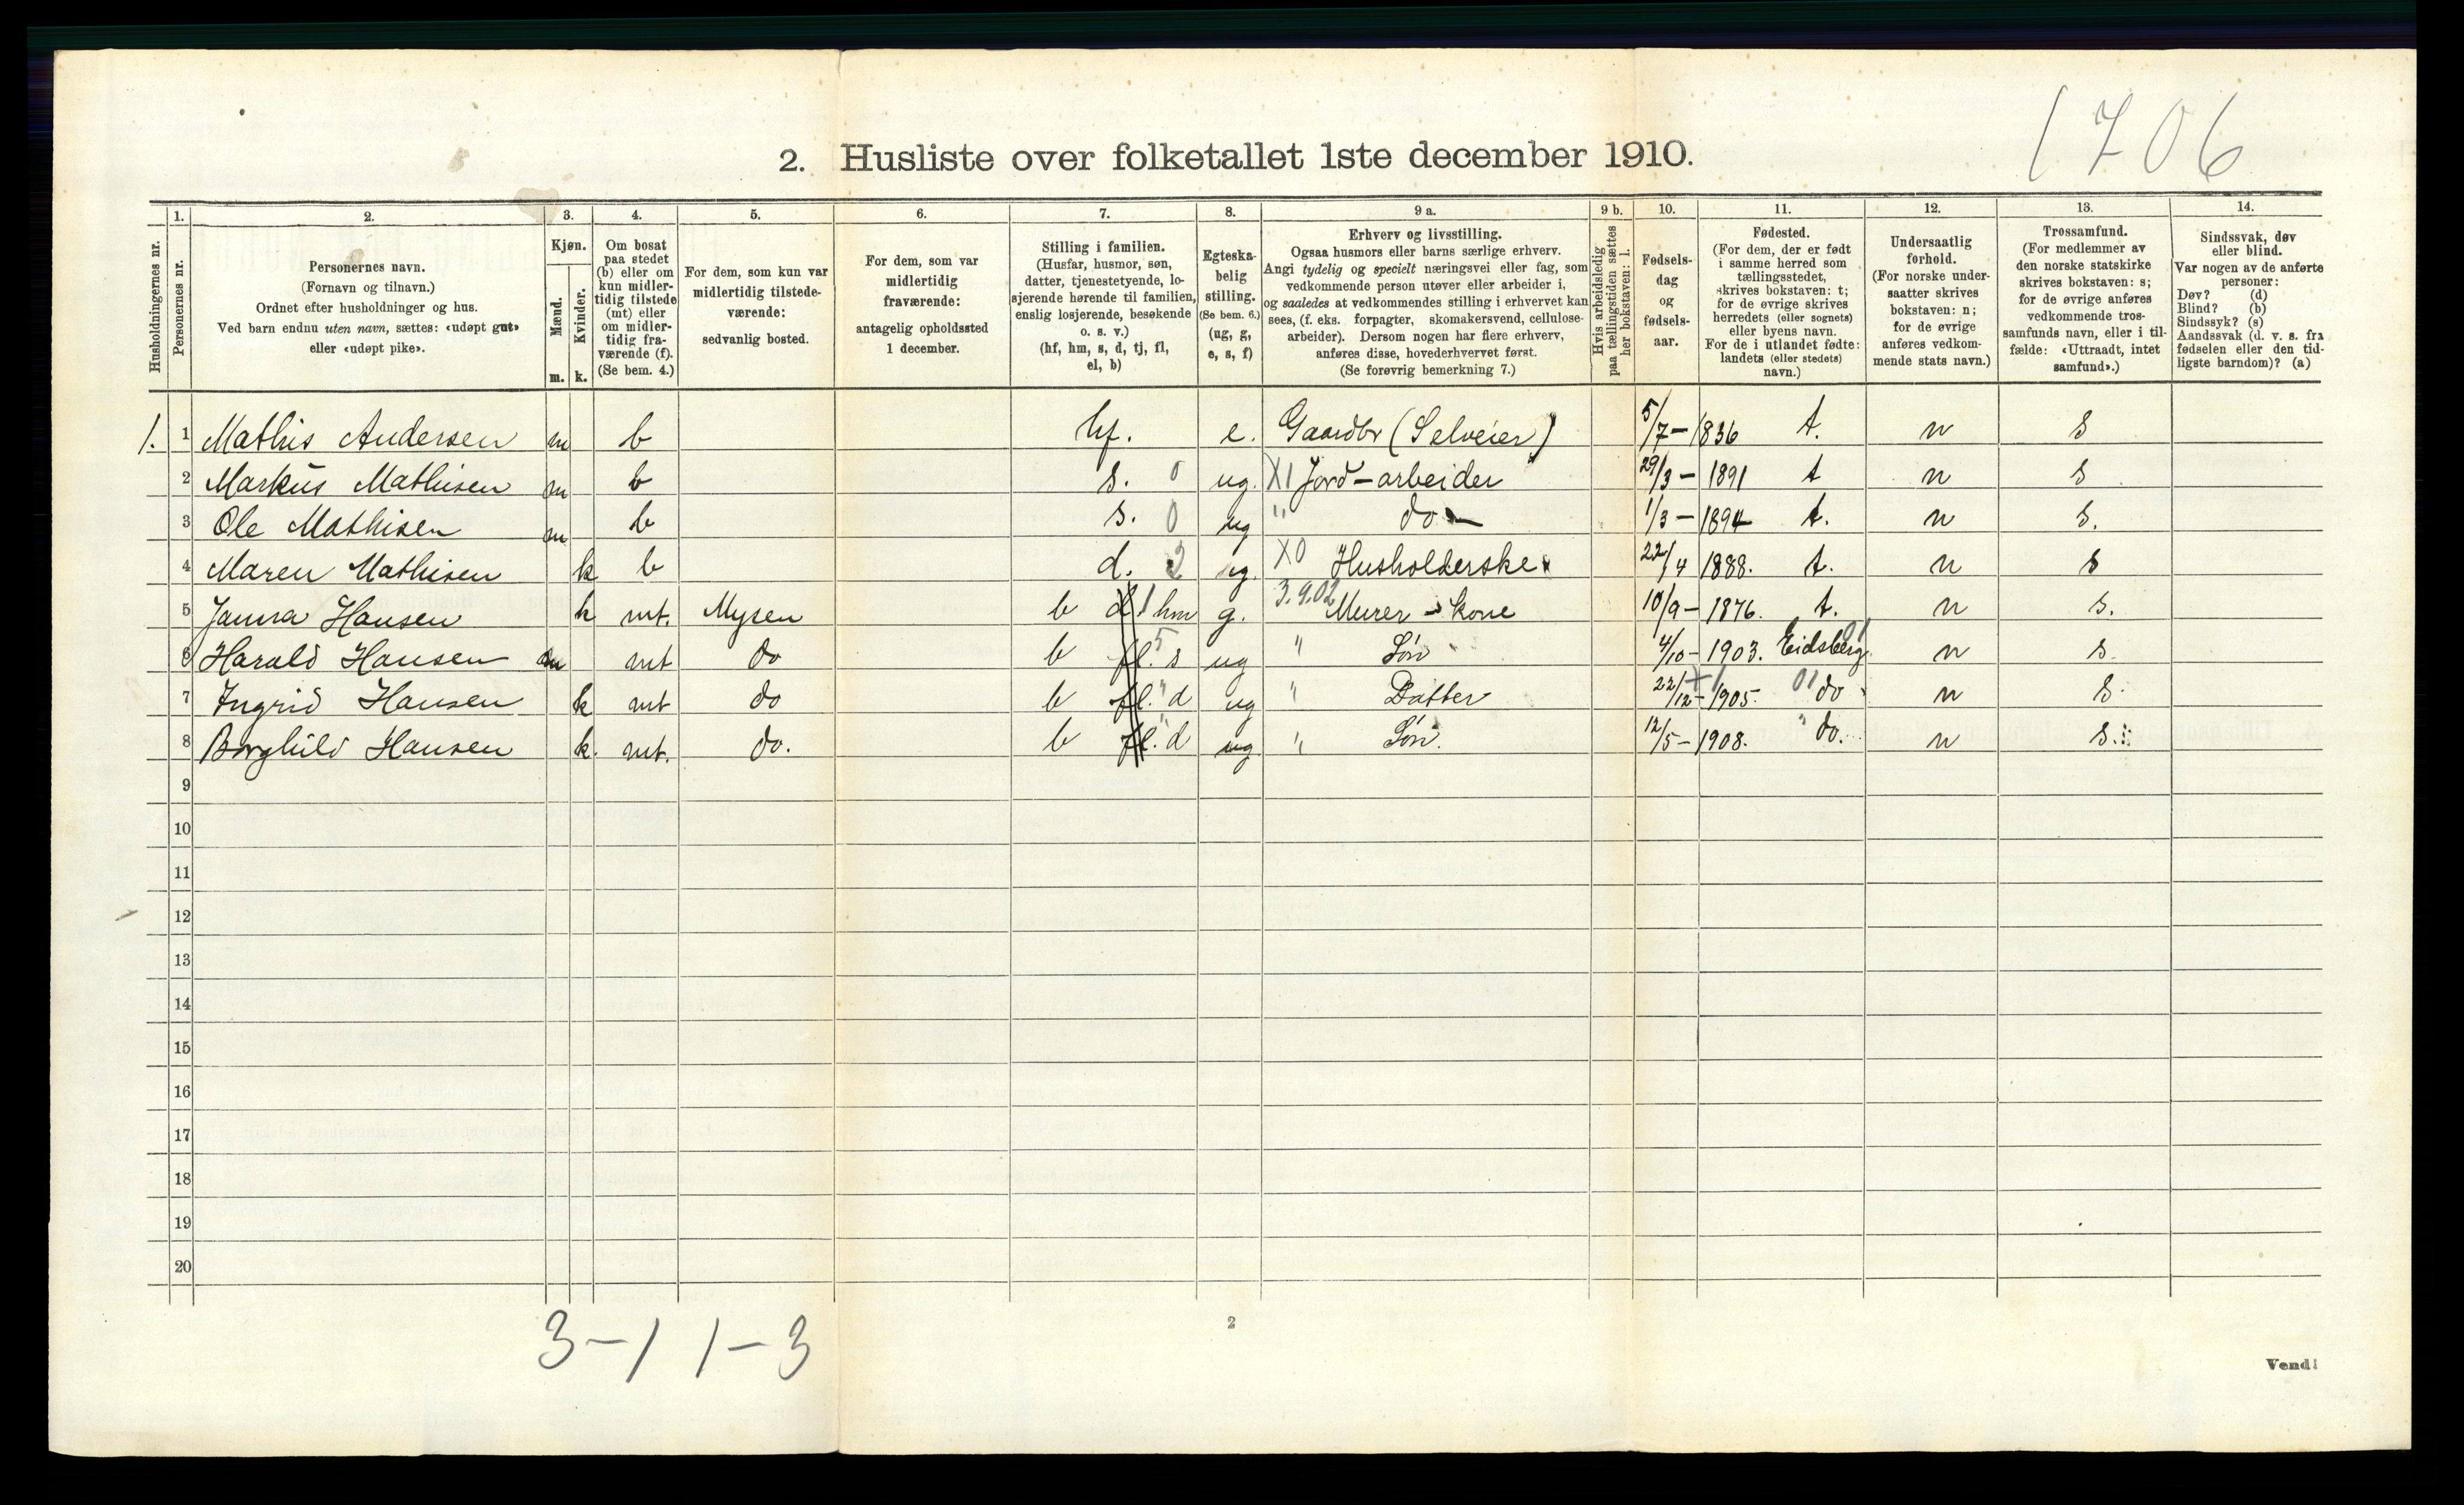 1706
2. Husliste over folketallet 1ste december 1910.
Husholdningernes nr.
1.
Personernes nr.
2.
Personernes navn.
(Fornavn og tilnavn.)
Ordnet efter husholdninger og hus.
Ved barn endnu uten navn, sættes: «udøpt gut»
eller «udøpt pike».
3.
Kjøn.
Mænd.
Kvinder.
m. k.
4.
Om bosat
paa stedet
(b) eller om
kun midler-
tidig tilstede
(mt) eller
om midler-
tidig fra-
værende (f).
(Se bem. 4.)
5.
For dem, som kun var
midlertidig tilstede-
værende:
sedvanlig bosted.
6.
For dem, som var
midlertidig
fraværende:
antagelig opholdssted
1 december.
7.
Stilling i familien.
(Husfar, husmor, søn,
datter, tjenestetyende, lo-
sjerende hørende til familien,
enslig losjerende, besøkende
o. s. v.)
(hf, hm, s, d, tj, fl,
el, b)
8.
Egteska-
belig
stilling.
(Se bem. 6.)
(ug, g,
e, s, f)
9 a.
Erhverv og livsstilling.
Ogsaa husmors eller barns særlige erhverv.
Angi tydelig og specielt næringsvei eller fag, som
vedkommende person utøver eller arbeider i,
og saaledes at vedkommendes stilling i erhvervet kan
sees, (f. eks. forpagter, skomakersvend, cellulose-
arbeider). Dersom nogen har flere erhverv,
anføres disse, hovederhvervet først.
(Se forøvrig bemerkning 7.)
9 b.
Hvis arbeidsledig
paa tællingstiden sættes
her bokstaven: l.
10.
Fødsels-
dag
og
fødsels-
aar.
11.
Fødested.
(For dem, der er født
i samme herred som
tællingsstedet,
skrives bokstaven: t;
for de øvrige skrives
herredets (eller sognets)
eller byens navn.
For de i utlandet fødte:
landets (eller stedets)
navn.)
12.
Undersaatlig
forhold.
(For norske under-
saatter skrives
bokstaven: n;
for de øvrige
anføres vedkom-
mende stats navn.)
13.
Trossamfund.
(For medlemmer av
den norske statskirke
skrives bokstaven: s;
for de øvrige anføres
vedkommende tros-
samfunds navn, eller i til-
fælde: «Uttraadt, intet
samfund».)
14.
Sindssvak, døv
eller blind.
Var nogen av de anførte
personer:
Døv? (d)
Blind? (b)
Sindssyk? (s)
Aandssvak (d. v. s. fra
fødselen eller den tid-
ligste barndom)? (a)
1. 1 Mathis Andersen m b hf. e. Gaardbr (Selveier) 5/7-1836 t. n s
2 Markus Mathisen m b s. 0 ug. X1 Jord-arbeider 29/3-1891 t n s
3 Ole Mathisen m b s. 0 ug " do - 1/3-1894 t. n s.
4 Maren Mathisen k b d. 2 ug. X0 Husholderske 22/4 1888. t. n s
5 Janna Hansen k mt. Mysen b d 1 hm g. 3.9.02 Murer-kone 10/9-1876. t. n s.
6 Harald Hansen m mt do b fl. 5 s ug " Søn 4/10-1903. Eidsberg 01 n s.
7 Ingrid Hansen k mt do b fl. " d ug " Datter 22/12-1905. 01 do n s.
8 Borghild Hansen k. mt. do. b fl. " d ug " Søn. 12/5-1908. " do. n s.
9
10
11
12
13
14
15
16
17
18
19
20
3-1 1-3
2
Vend!